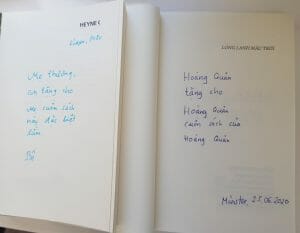 HEYNE
Mẹ thương,
con tặng cho
Mẹ cuốn sách
này đặc biệt
lắm
LÓNG LÁNH MÀU TRỜI
Hoàng Quân
tặng cho
Hoàng Quân
cuốn sách của
Hoàng Quân
Münster, 25.06.2020